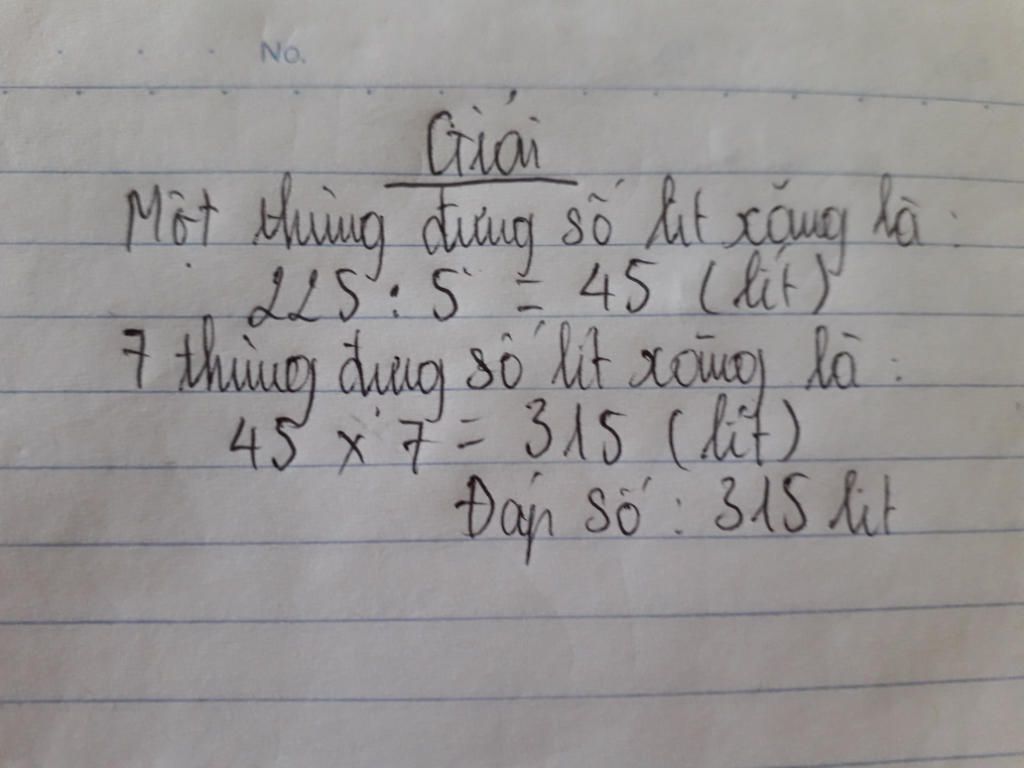 No.
Giải
Một thùng đựng số lít xăng là:
225 : 5 = 45 (lít)
7 thùng đựng số lít xăng là:
45 x 7 = 315 (lít)
Đáp số: 315 lít